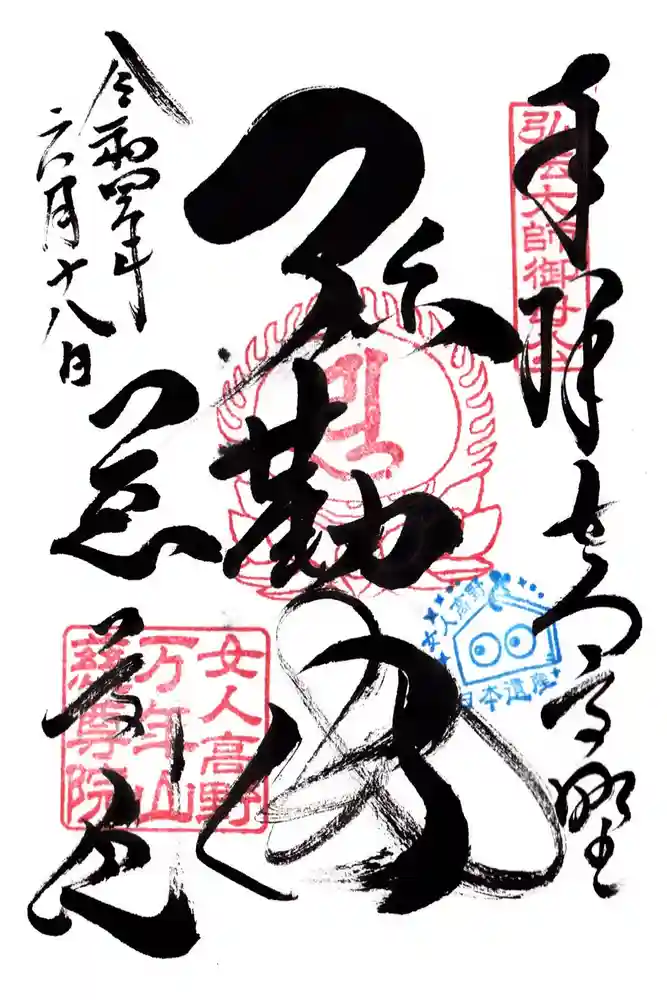 奉拝 女人高野
弘法大師御母公
弥勒佛
女人高野
日本遺産
令和四年
六月十八日
慈尊院
女人高野
万年山
慈尊院